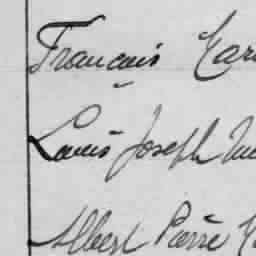 François
Louis Joseph
Albert Pierre